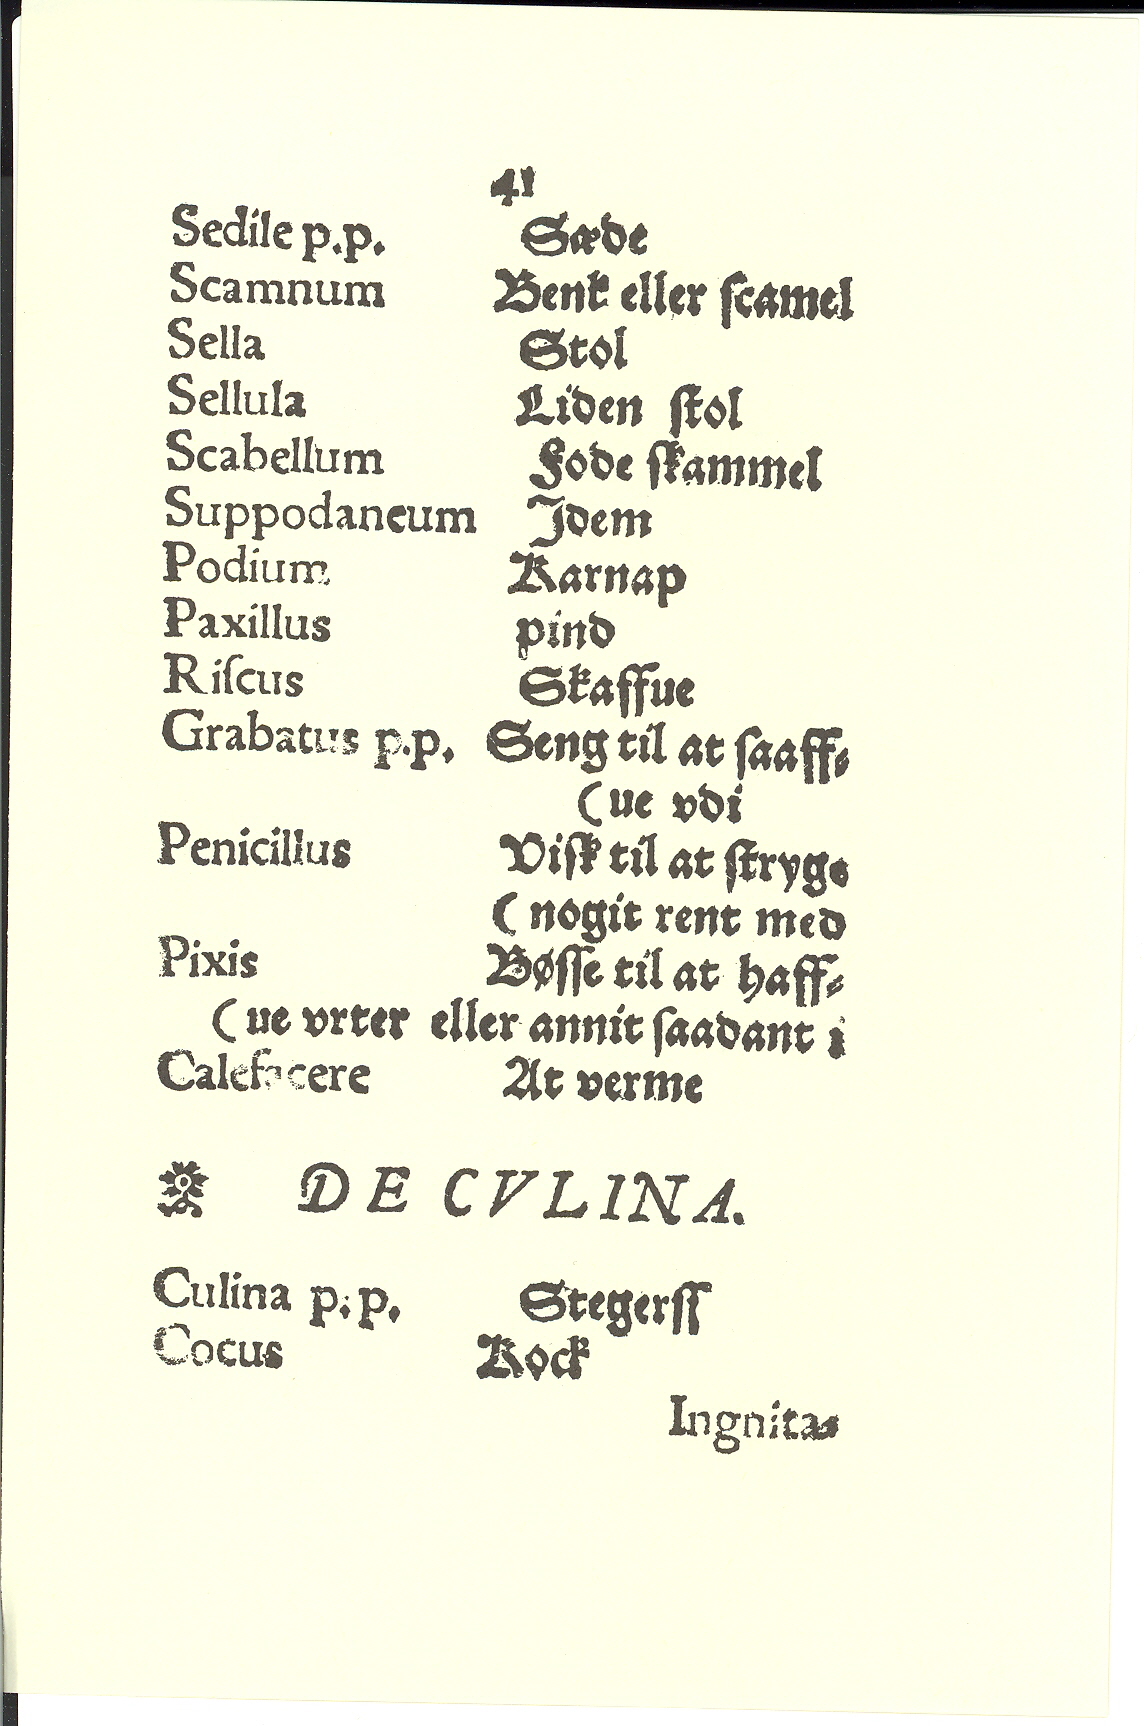 41
Sedile p.p. Sæde
Scamnum Benk eller ſcamel
Sella Stol
Sellula Liden ſtol
Scabellum Fode ſkammel
Suppodaneum Idem
Podium Karnap
Paxillus pind
Riſcus Skaffue
Grabatus p.p. Seng til at ſaaff⸗
(ue vdi
Penicillus Viſk til at ſtryge
(nogit rent med
Pixis Bøſſe til at haff⸗
(ue vrter eller annit ſaadant i
Calefacere At verme
DE CVLINA.
Culina p.p. Stegerſſ
Cocus Kock
Ingnitas